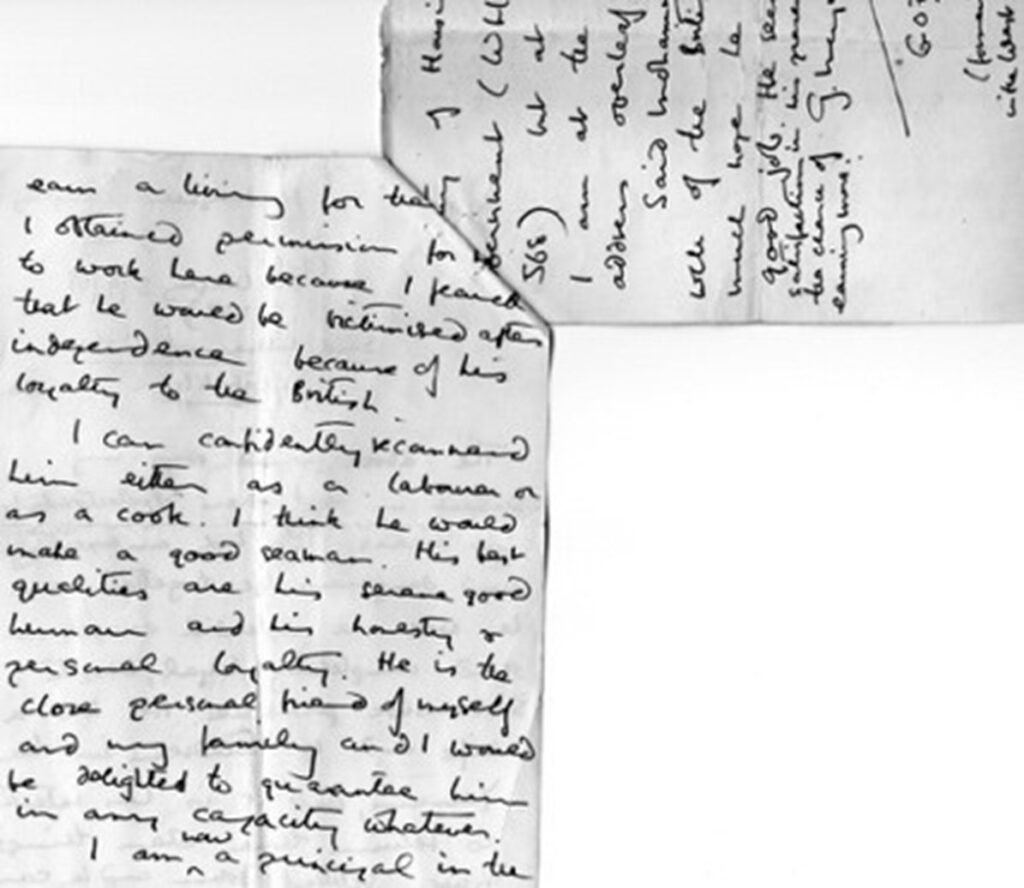 earn a living for
I obtained permission for
to work here because I feared
that he would be victimised after
independence because of his
loyalty to the British.
I can confidently recommend
him either as a labourer or
as a cook. I think he would
make a good seaman. His best
qualities are his serene good
humour and his honesty &
personal loyalty. He is the
close personal friend of myself
and my family and I would
be delighted to guarantee him
in any capacity whatever.
I am now a principal in the
of Housi
(WHI
568) but at
I am at the
address overleaf
Said Mohamm
well of the Briti
much hope he
good job. He see
satisfaction in his
the chance of
earning more.